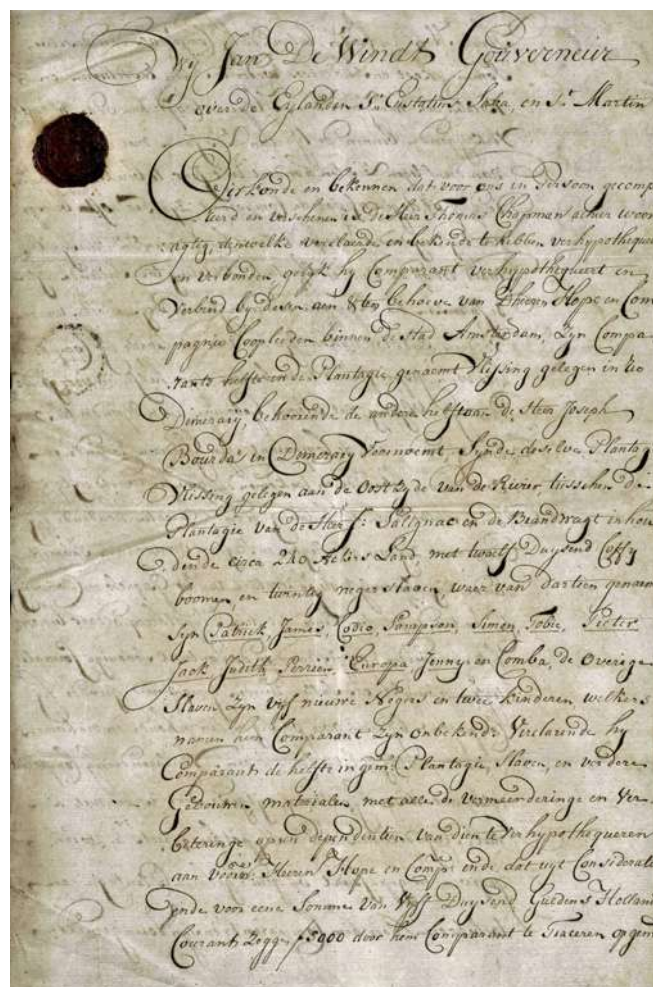 Wij Jan De Windt Gouverneur
over de Eylanden St Eustatius Saba, en St Martin
Oirkonde en bekennen dat voor ons in Persoon gecomp
eerd en verschenen is de Heer Thomas Chapman alhier woon
agtig, dewelke verclaerde en bekende te hebben verhypothequ
en verbonden gelijk hij Comparant verhypothequeert en
Verbind bij desen aan & ten behoeve van Hope en Com
pagnie Coopleeden binnen de Stad Amsterdam, Zyn Compa
rants helfte in de Plantagie genaemt Vlissing gelegen in Rio
Demerary, behoorende de andere helft aan de Heer Joseph
Bourda in Demerary Voornoemt, Synde deselve Plantag
Vlissing gelegen aan de Oostzyde van de Rivier, tusschen de
Plantagie van de Heer Salignac en de Brandwagt inhou
dende circa 240 Ackers Land, met twaelf Duysend Coffy
boomen, en twintig neger slaaven, waar van dartien genaem
Syn Patrick, James, Codio, Sampson, Simon, Tobie, Pieter
Jack Judith, Perrien, Europa Jenny en Comba, de Overige
Slaven Zyn vyf nieuwe Negers en twee kinderen welkers
namen aen Comparant Zyn onbekend: Verclarende hy
Comparant de helfte in gem: Plantagie, Slaven, en verdere
Gebouwen materialen, met alle de vermeerderinge en Ver
beteringe dependentien van dien te verhypothequeren
aan voorn: Heeren Hope en Comp: ende dat uyt Consideratie
ende voor eene Somma van Vyf Duysend Guldens Holland
Courant Zegge f5000 door hem Comparant te Traceren op gem